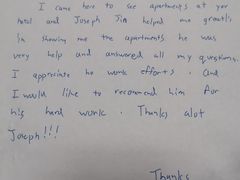 I came here to see apartments at your
hotel and Joseph Jin helped me greatly
in showing me the apartments he was
very help and answered all my questions.
I appreciate he work efforts. and
I would like to recommend him for
his hard work. Thanks alot
Joseph!!!
Thanks